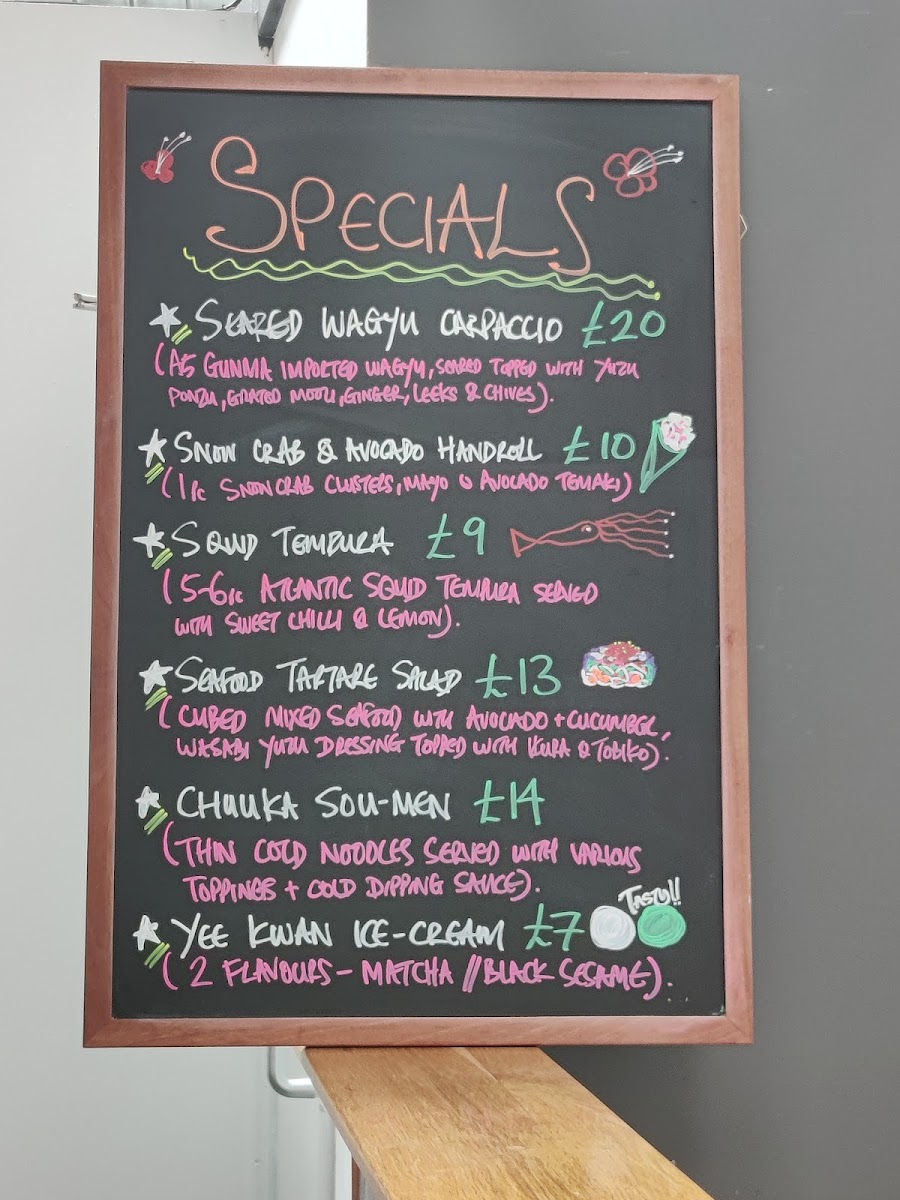 SPECIALS
SEARED WAGYU CARPACCIO £20
(A5 GUNMA IMPORTED WAGYU, SEARED TOPPED WITH YUZU
PONZU, GRATED MOOLI, GINGER, LEEKS & CHIVES).
SNOW CRAB & AVOCADO HANDROLL £10
(1pc SNOW CRAB CLUSTERS, MAYO & AVOCADO TEMAKI)
SQUID TEMPURA £9
(5-6pc ATLANTIC SQUID TEMPURA SERVED
WITH SWEET CHILLI & LEMON).
SEAFOOD TARTARE SALAD £13
(CUBED MIXED SEAFOOD WITH AVOCADO + CUCUMBER,
WASABI YUZU DRESSING TOPPED WITH IKURA & TOBIKO).
CHUUKA SOU-MEN £14
(THIN COLD NOODLES SERVED WITH VARIOUS
TOPPINGS + COLD DIPPING SAUCE).
TASTY!!
YEE KWAN ICE-CREAM £7
(2 FLAVOURS - MATCHA // BLACK SESAME).